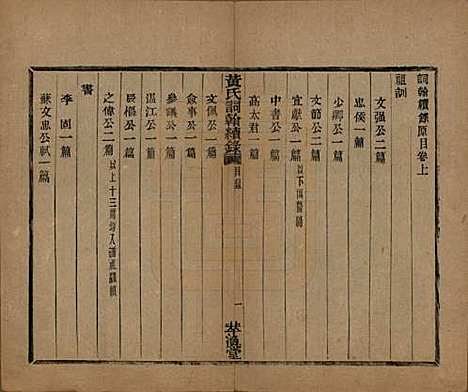 詞翰續錄原目卷上
祖訓
文强公二篇
忠侯一篇
少卿公一篇
文節公二篇
宜獻公一篇以下四篇闕
中書公一篇
高太君一篇
黃氏詞翰續錄 目錄 一
文佩公一篇
僉事公一篇
參議公一篇
温江公一篇
辰樞公一篇
之偉公二篇以上十三篇
書
李固一篇
蘇文忠公軾一篇